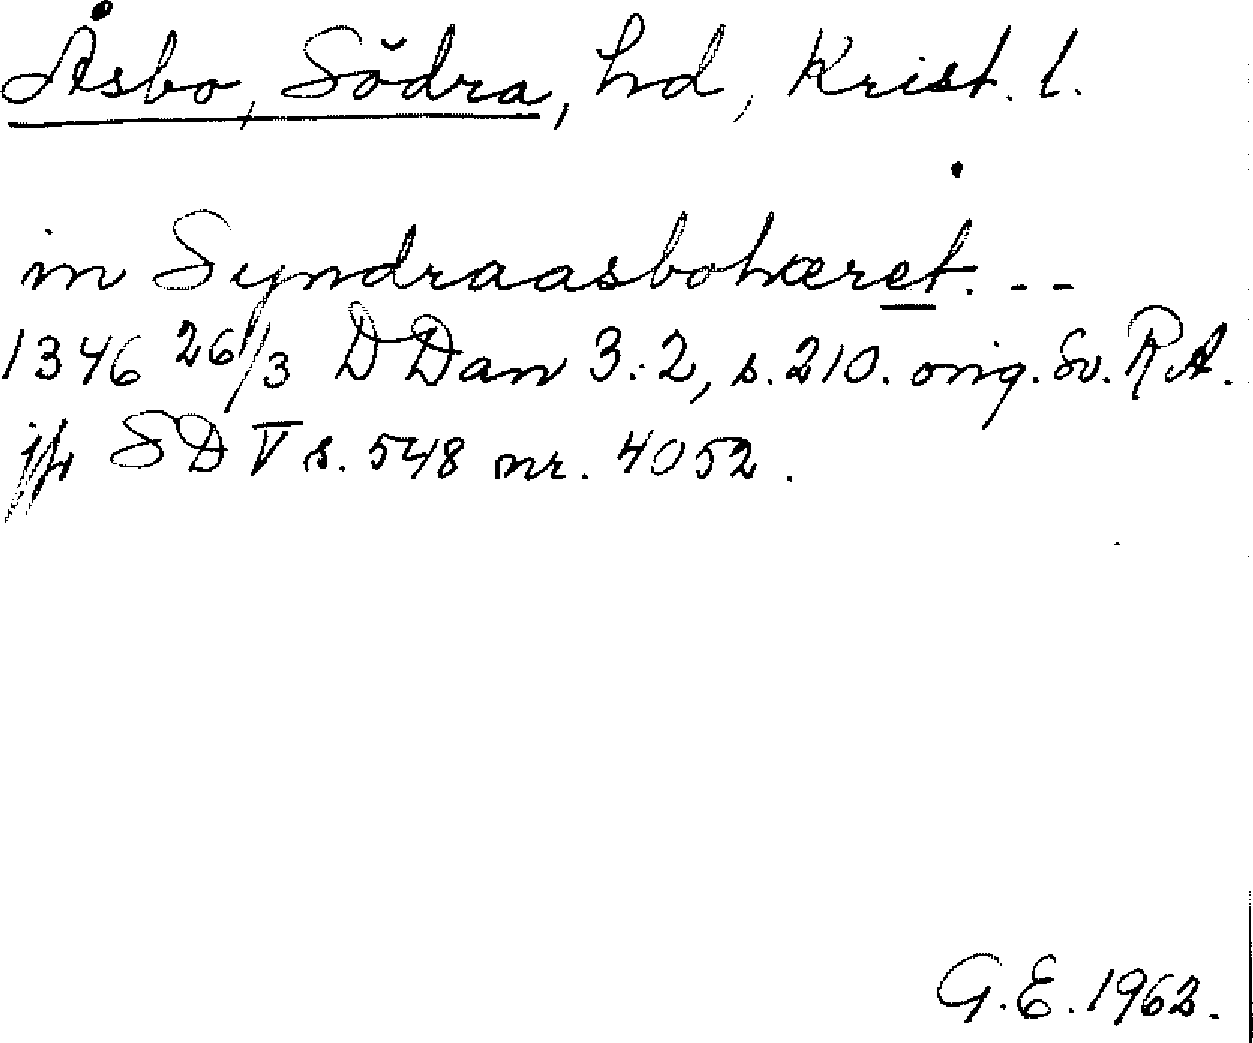 Åsbo, Södra, hd, Krist. l.
in Syndraasbohæret. --
1346 26/3 DDan 3:2, s. 210. orig. Sv. RA.
jfr SD V s. 548 nr. 4052.
G.E. 1962.